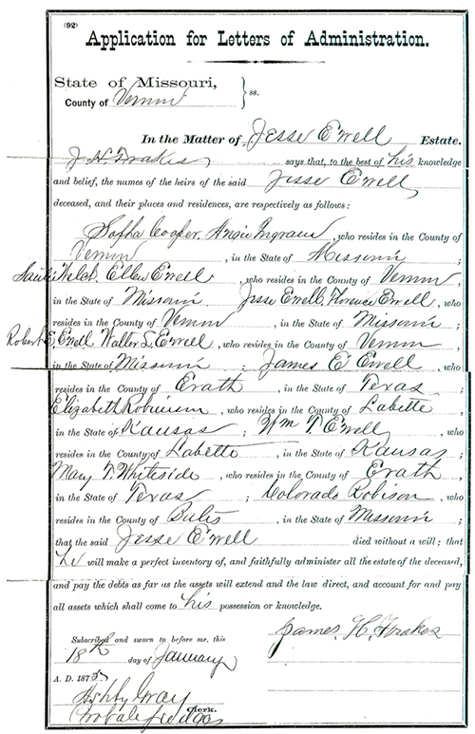 (92)
Application for Letters of Administration.
State of Missouri,
County of Vernon } ss.
In the Matter of Jesse Ewell Estate.
J H Frakes says that, to the best of his knowledge
and belief, the names of the heirs of the said Jesse Ewell,
deceased, and their places and residences, are respectively as follows:
Sopha Cooper, Angie Ingram, who resides in the County of
Vernon, in the State of Missouri;
Welch, Ellen Ewell, who resides in the County of Vernon,
in the State of Missouri Jesse Ewell, Florence Ewell, who
resides in the County of Vernon, in the State of Missouri;
Robert E. Ewell Walter L. Ewell, who resides in the County of Vernon
in the State of Missouri; James E Ewell, who
resides in the County of Erath, in the State of Texas;
Elizabeth Robinson, who resides in the County of Labette,
in the State of Kansas; Wm T. Ewell, who
resides in the County of Labette, in the State of Kansas;
Mary T. Whiteside, who resides in the County of Erath,
in the State of Texas; Colorado Robison, who
resides in the County of Bates, in the State of Missouri;
that the said Jesse Ewell died without a will; that
he will make a perfect inventory of, and faithfully administer all the estate of the deceased,
and pay the debts as far as the assets will extend and the law direct, and account for and pay
all assets which shall come to his possession or knowledge.
James H. Frakes
Subscribed and sworn to before me, this
18th day of January
A. D. 1875
Ashby Gray
Clerk.
Probate